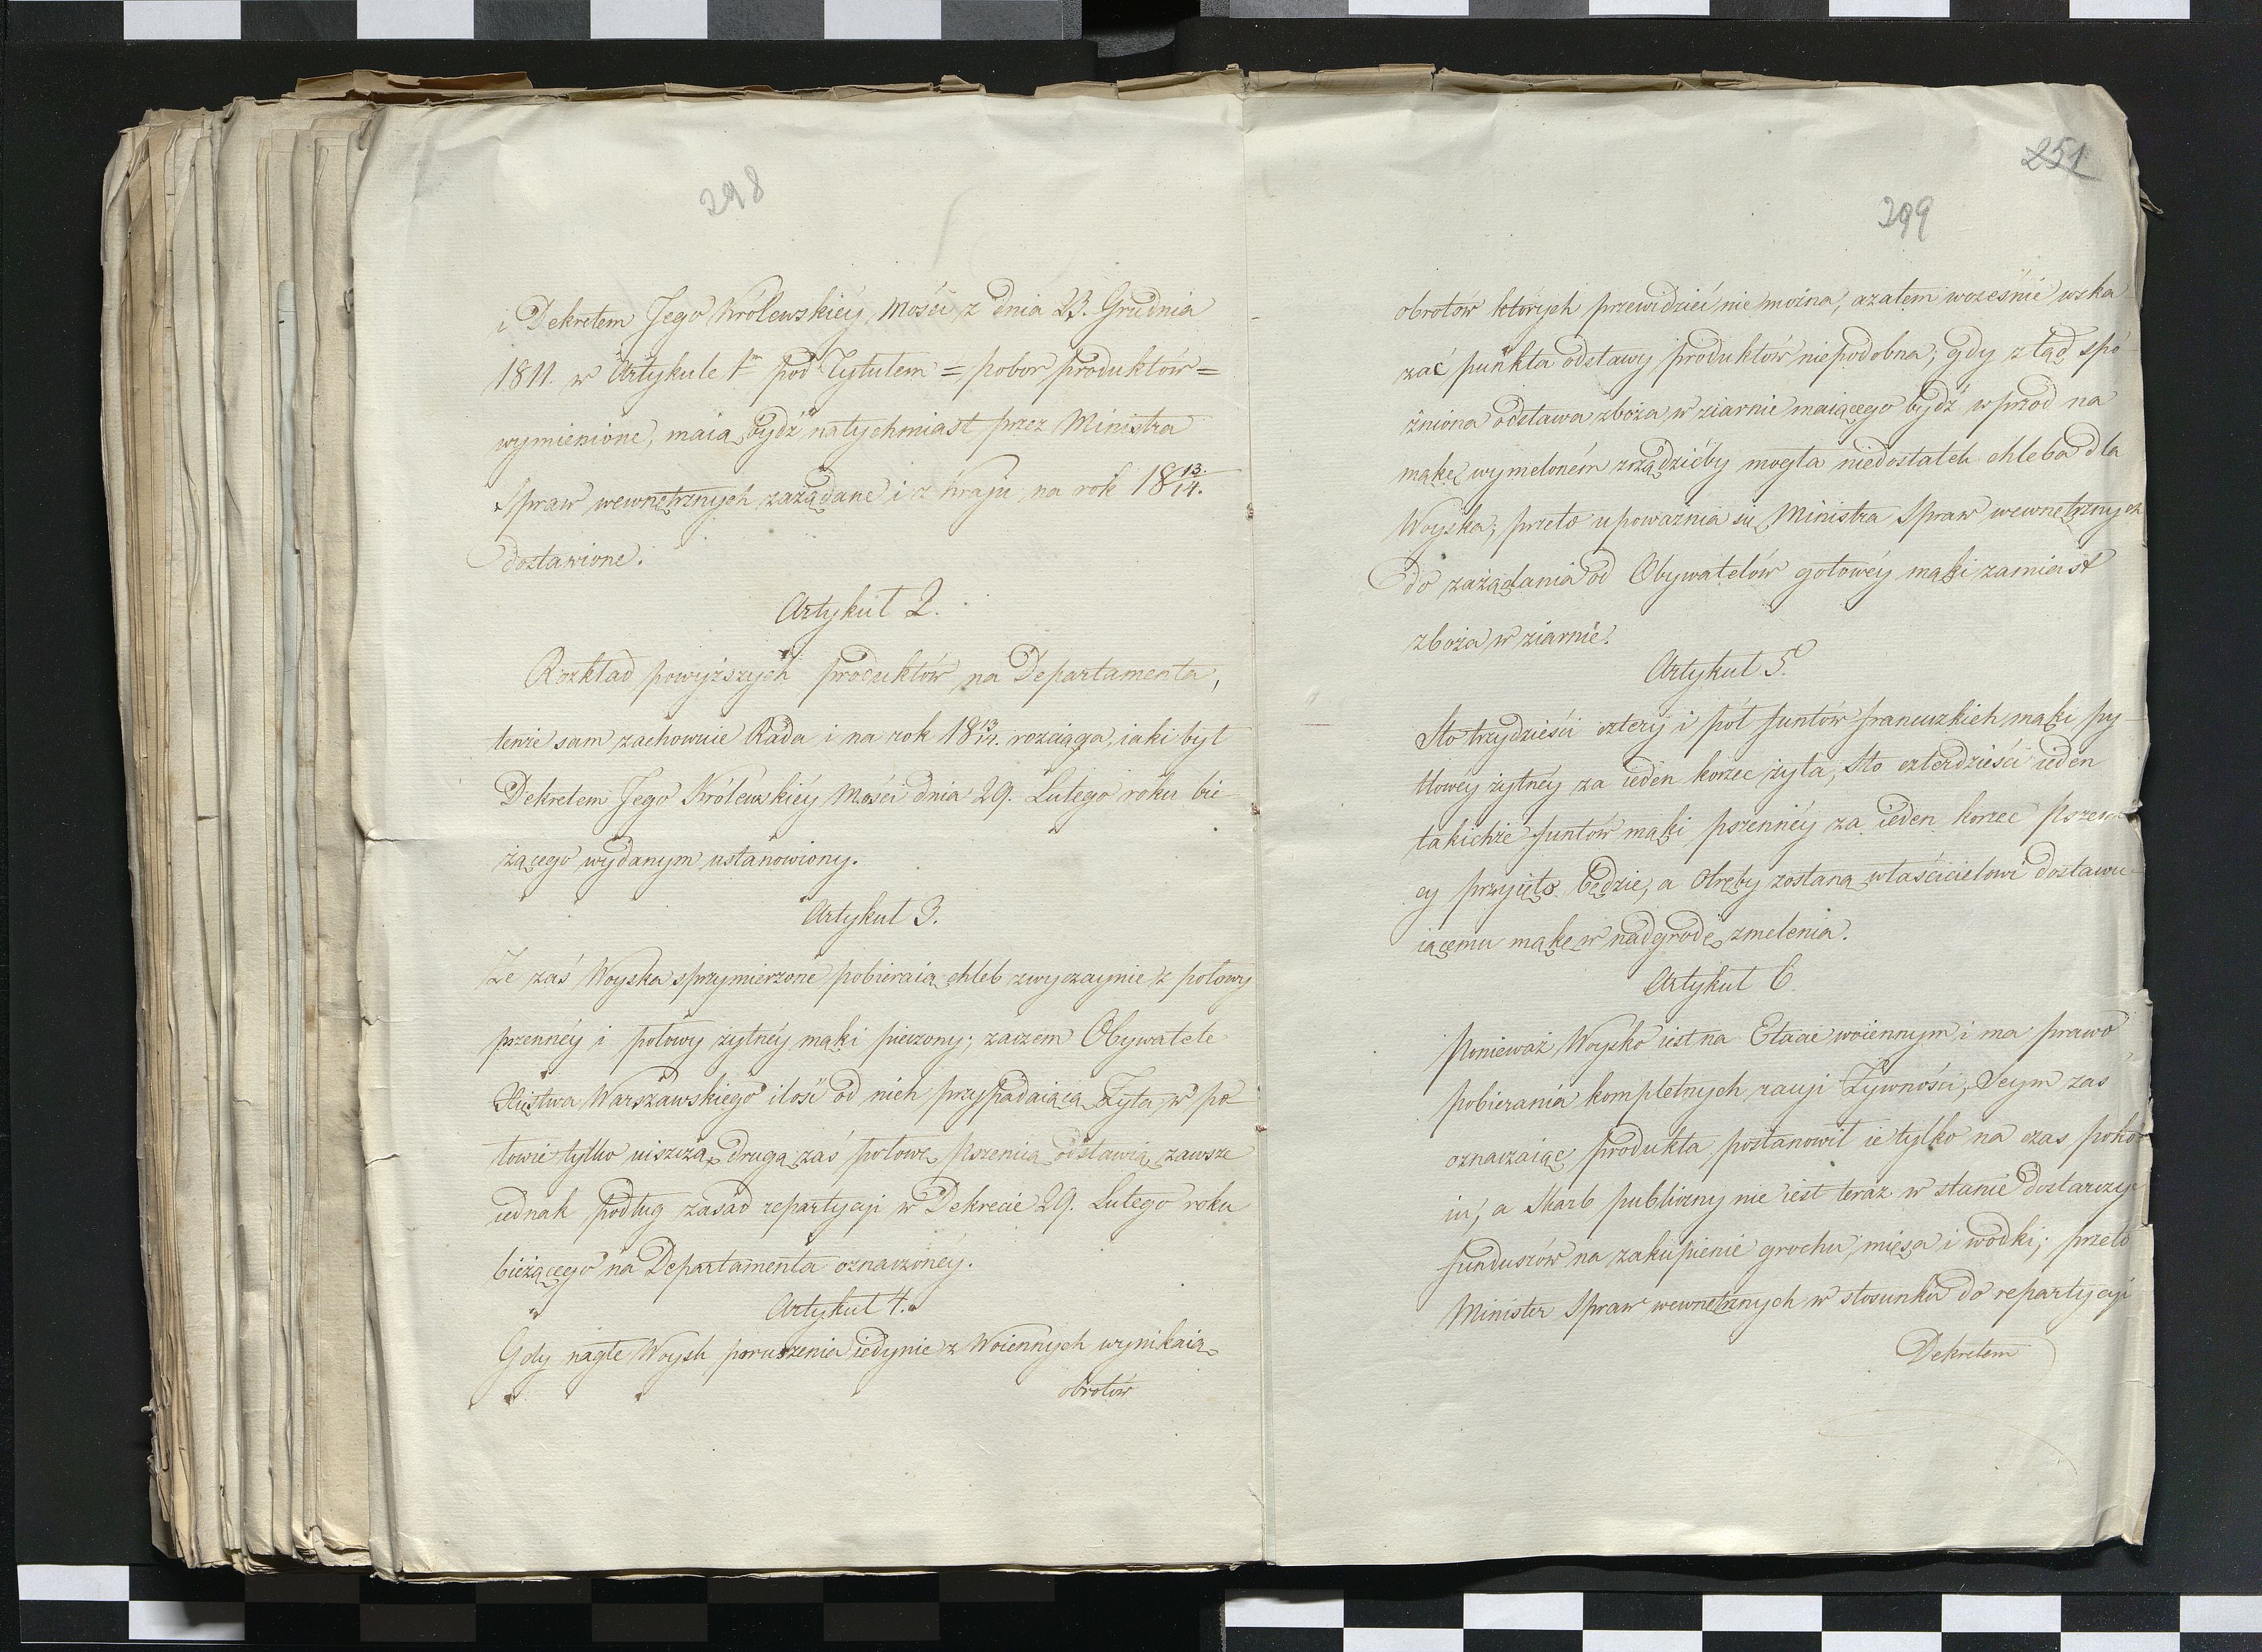 298
i Dekretem Jego Królewskiéy Mości z dnia 23. Grudnia
1811. w Artykule 1m pod Tytułem = pobor produktów =
wymienione, maią bydź natychmiast przez Ministra
Spraw wewnętrznych zażądane i z kraju na rok 18 13./14.
dostawione.
Artykuł 2.
Rozkład powyższych produktów na Departamenta,
tenże sam zachowuie Rada i na rok 18 13/14. rozciąga, iaki był
Dekretem Jego Królewskiéy Mości dnia 29. Lutego roku bie-
żącego wydanym ustanowiony.
Artykuł 3.
Że zaś Woyska sprzymierzone pobieraią chleb zwyczaynie z połowy
pszennéy i połowy żytnéy mąki pieczony; zaczem Obywatele
Xięstwa Warszawskiego ilość od nich przypadaiącą Żyta, w po
łowie tylko uiszczą, drugą zaś połowę pszenicą odstawią, zawsze
iednak podług zasad repartycyi w Dekrecie 29. Lutego roku
bieżącego na Departamenta oznaczonéy.
Artykuł 4.
Gdy nagłe Woysk poruszenia iedynie z Woiennych wynikaią
obrotów
251
299
obrotów których przewidzieć nie można, a zatem wcześnie wska
zać punkta odstawy produktów niepodobna; gdy z tąd spó
źniona odstawa zboża w ziarnie maiącego bydź wprzod na
mąkę wymeloném zrządzićby mogła niedostatek chleba dla
Woyska; przeto upoważnia się Ministra Spraw wewnętrznych
do zażądania od Obywatelów gotowéy mąki zamiast
zboża w ziarnie.
Artykuł 5.
Sto trzydzieści cztery i pół funtów francuzkich mąki py-
tlowéy żytnéy za ieden korzec żyta, Sto czterdzieści ieden
takichże funtów mąki pszennéy za ieden korzec Pszeni
cy przyięto będzie, a Otręby zostaną właścicielowi dostawu-
iącemu mąkę w nadgrodę zmelenia.
Artykuł 6.
Ponieważ Woysko iest na Etacie woiennym i ma prawo
pobierania kompletnych racyi Żywności, Seym zas
oznaczaiąc produkta postanowił ie tylko na czas poko
iu, a Skarb publiczny nie iest teraz w stanie dostarczyć
funduszów na zakupienie grochu, mięsa i wodki; przeto
Minister Spraw wewnętrznych w stosunku do repartycyi
Dekretem